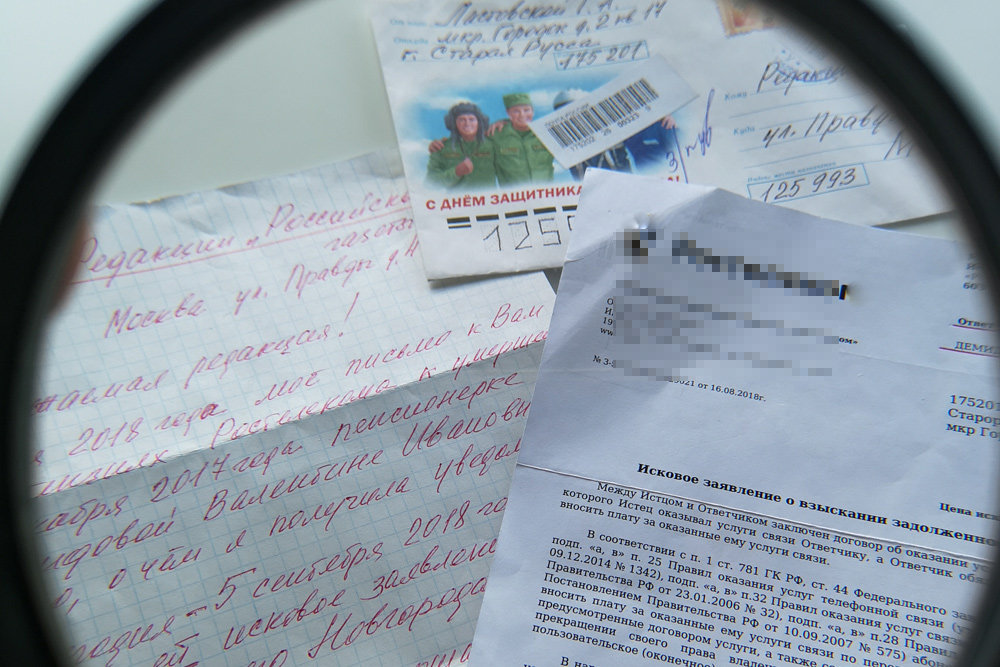 Ластовской Г.А.
мкр. Городок д. 2 кв 14
г. Старая Русса
175201
Кому Редакци
Куда ул. Правд
125993
С ДНЁМ ЗАЩИТНИКА
125
Редакции „Российск
газет
Москва ул. Правды д.
редакция!
2018 года моё письмо к Вам
Ростелекома к умерше
2017 года пенсионерке
Валентине Ивановн
о чём я получила уведом
5 сентября 2018 го
исковое заявлен
Новгорода
№ 3-
21 от 16.08.2018г.
Ответ
ДЕМИ
175201
Старор
мкр Го
Цена ис
Исковое заявление о взыскании задолженно
Между Истцом и Ответчиком заключен договор об оказании ус
которого Истец оказывал услуги связи Ответчику, а Ответчик обя
вносить плату за оказанные ему услуги связи.
В соответствии с п. 1 ст. 781 ГК РФ, ст. 44 Федерального за
подп. «а, в» п. 25 Правил оказания услуг телефонной связи (у
09.12.2014 № 1342), подп. «а, в» п.32 Правил оказания услуг связ
Правительства РФ от 23.01.2006 № 32), подп. «а, в» п.28 Правил
Постановлением Правительства РФ от 10.09.2007 № 575) або
вносить плату за оказанные ему услуги связи по пере
предусмотренные договором услуги, а также со
прекращении своего права владен
пользовательское (оконечное)
В на